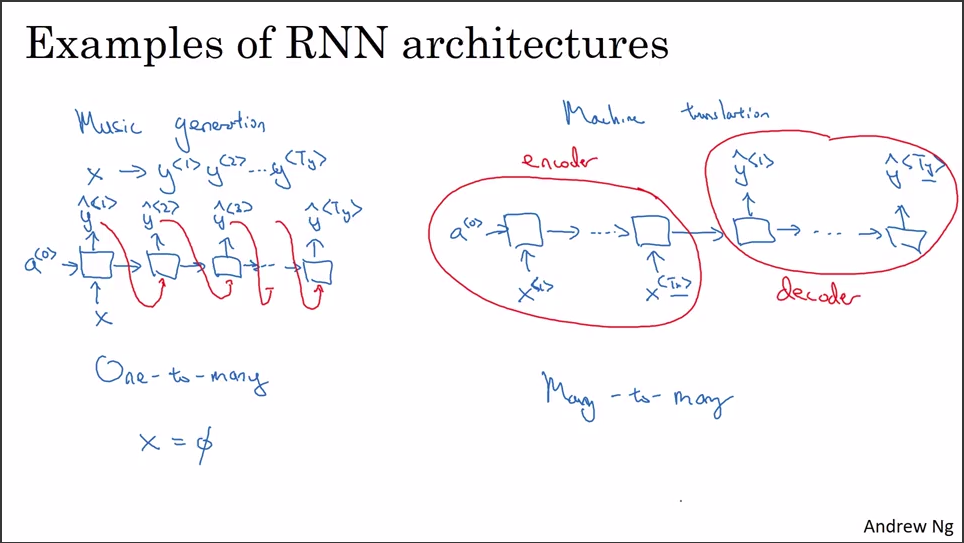 Examples of RNN architectures
Music generation
x → y<1> y<2> ... y<Ty>
ŷ<1> ŷ<2> ŷ<3> ŷ<Ty>
a<0> → → → ... →
x
One-to-many
x = ϕ
Machine translation
encoder
ŷ<1> ŷ<Ty>
a<0> → → ..... → → → ... →
x<1> x<Tx>
decoder
Many-to-many
Andrew Ng